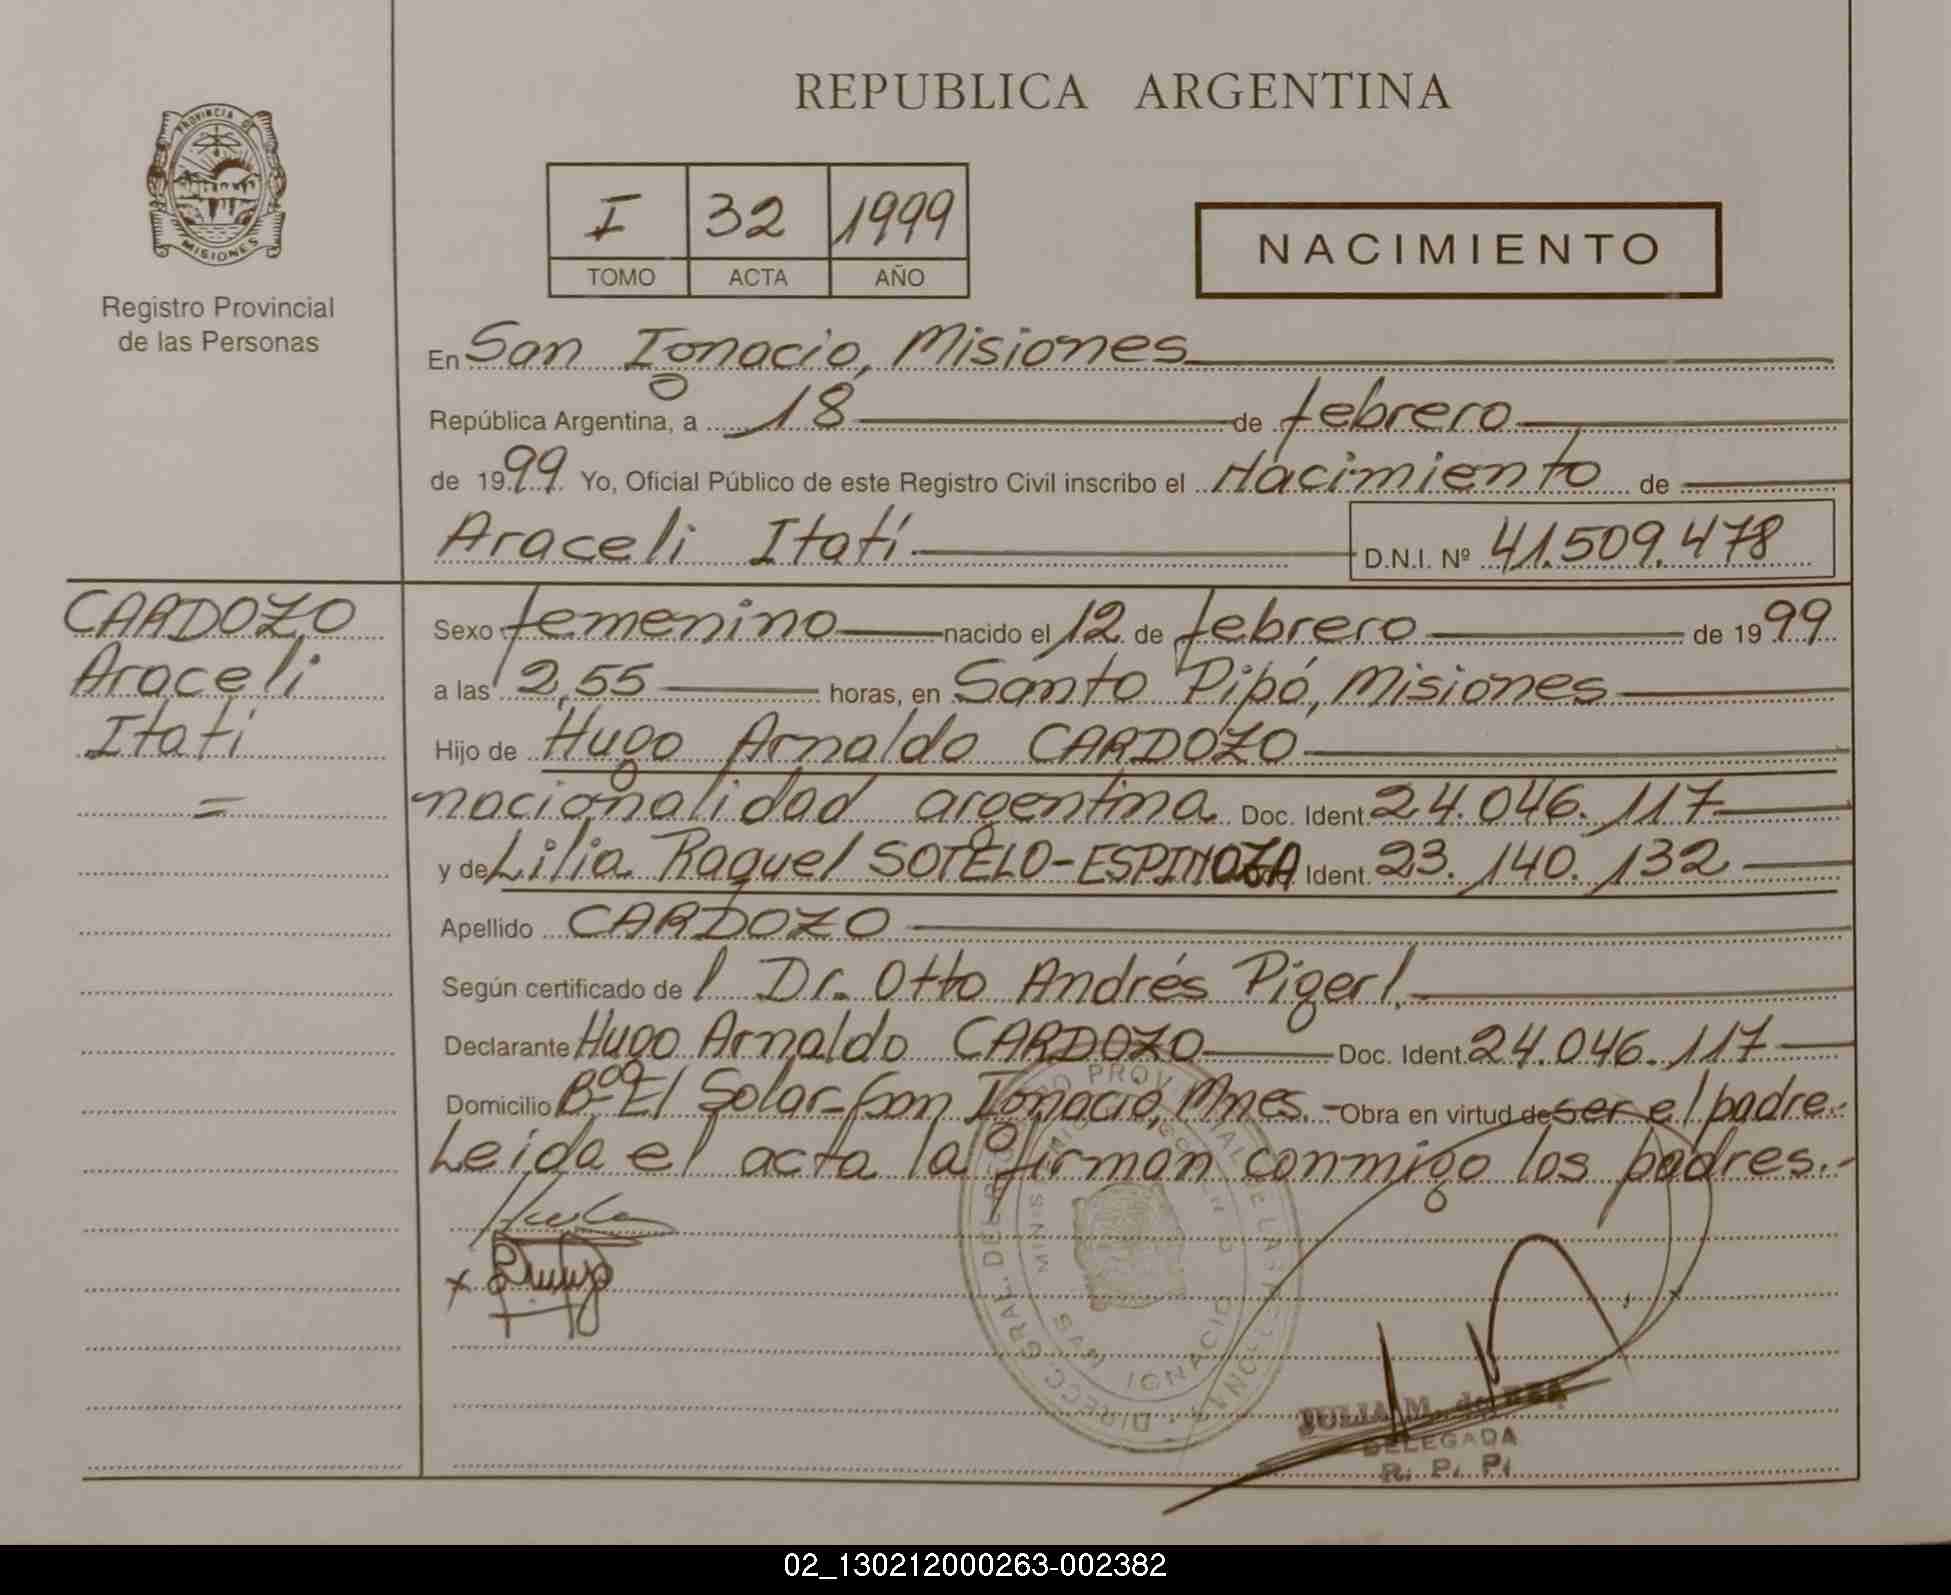 REPUBLICA ARGENTINA
PROVINCIA DE
MISIONES
Registro Provincial
de las Personas
I 32 1999
TOMO ACTA AÑO
NACIMIENTO
En San Ignacio, Misiones
República Argentina, a 18 de febrero
de 1999 Yo, Oficial Público de este Registro Civil inscribo el Nacimiento de
Araceli Itatí D.N.I. Nº 41.509.478
CARDOZO
Araceli
Itatí
=
Sexo femenino nacido el 12 de febrero de 1999
a las 2,55 horas, en Santo Pipó, Misiones
Hijo de Hugo Arnaldo CARDOZO
nacionalidad argentina Doc. Ident. 24.046.117
y de Lilia Raquel SOTELO-ESPINOZA Ident. 23.140.132
Apellido CARDOZO
Según certificado del Dr. Otto Andrés Pigerl.
Declarante Hugo Arnaldo CARDOZO Doc. Ident. 24.046.117
Domicilio Bºº El Solar-San Ignacio, Mnes.- Obra en virtud de ser el padre.-
Leida el acta la firman conmigo los padres.-
x
IGNACIO
JULIA M. de
DELEGADA
R. P. P.
02_130212000263-002382